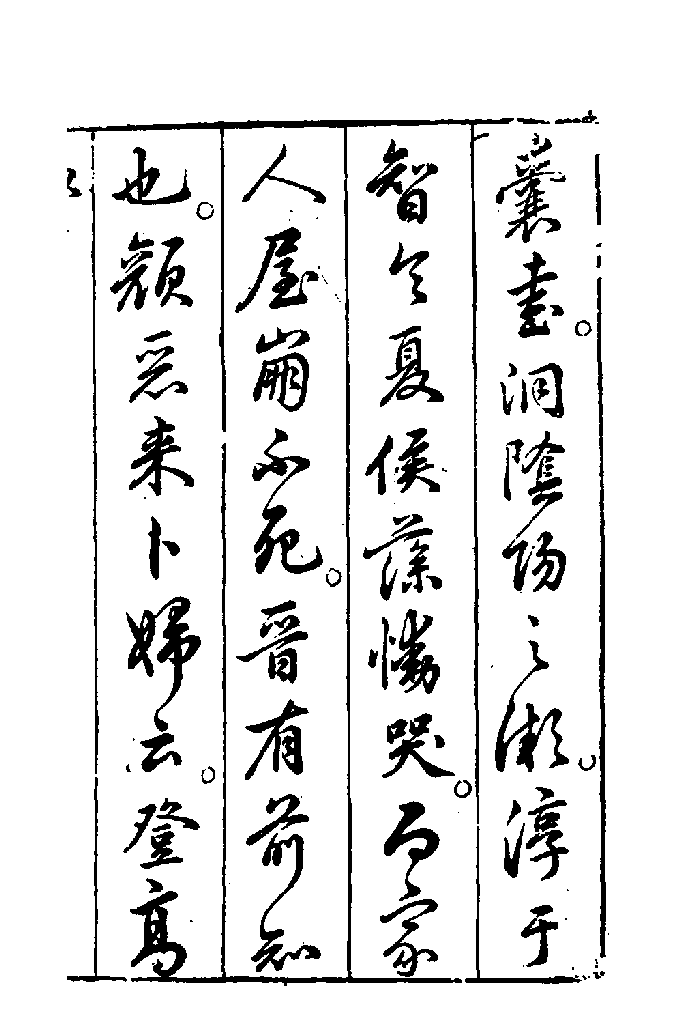 囊書。洞陰陽之微。淳于
智令夏侯藻慟哭。而家
人屋崩不死。晉有前知
也。顔惡来卜婦云。登高